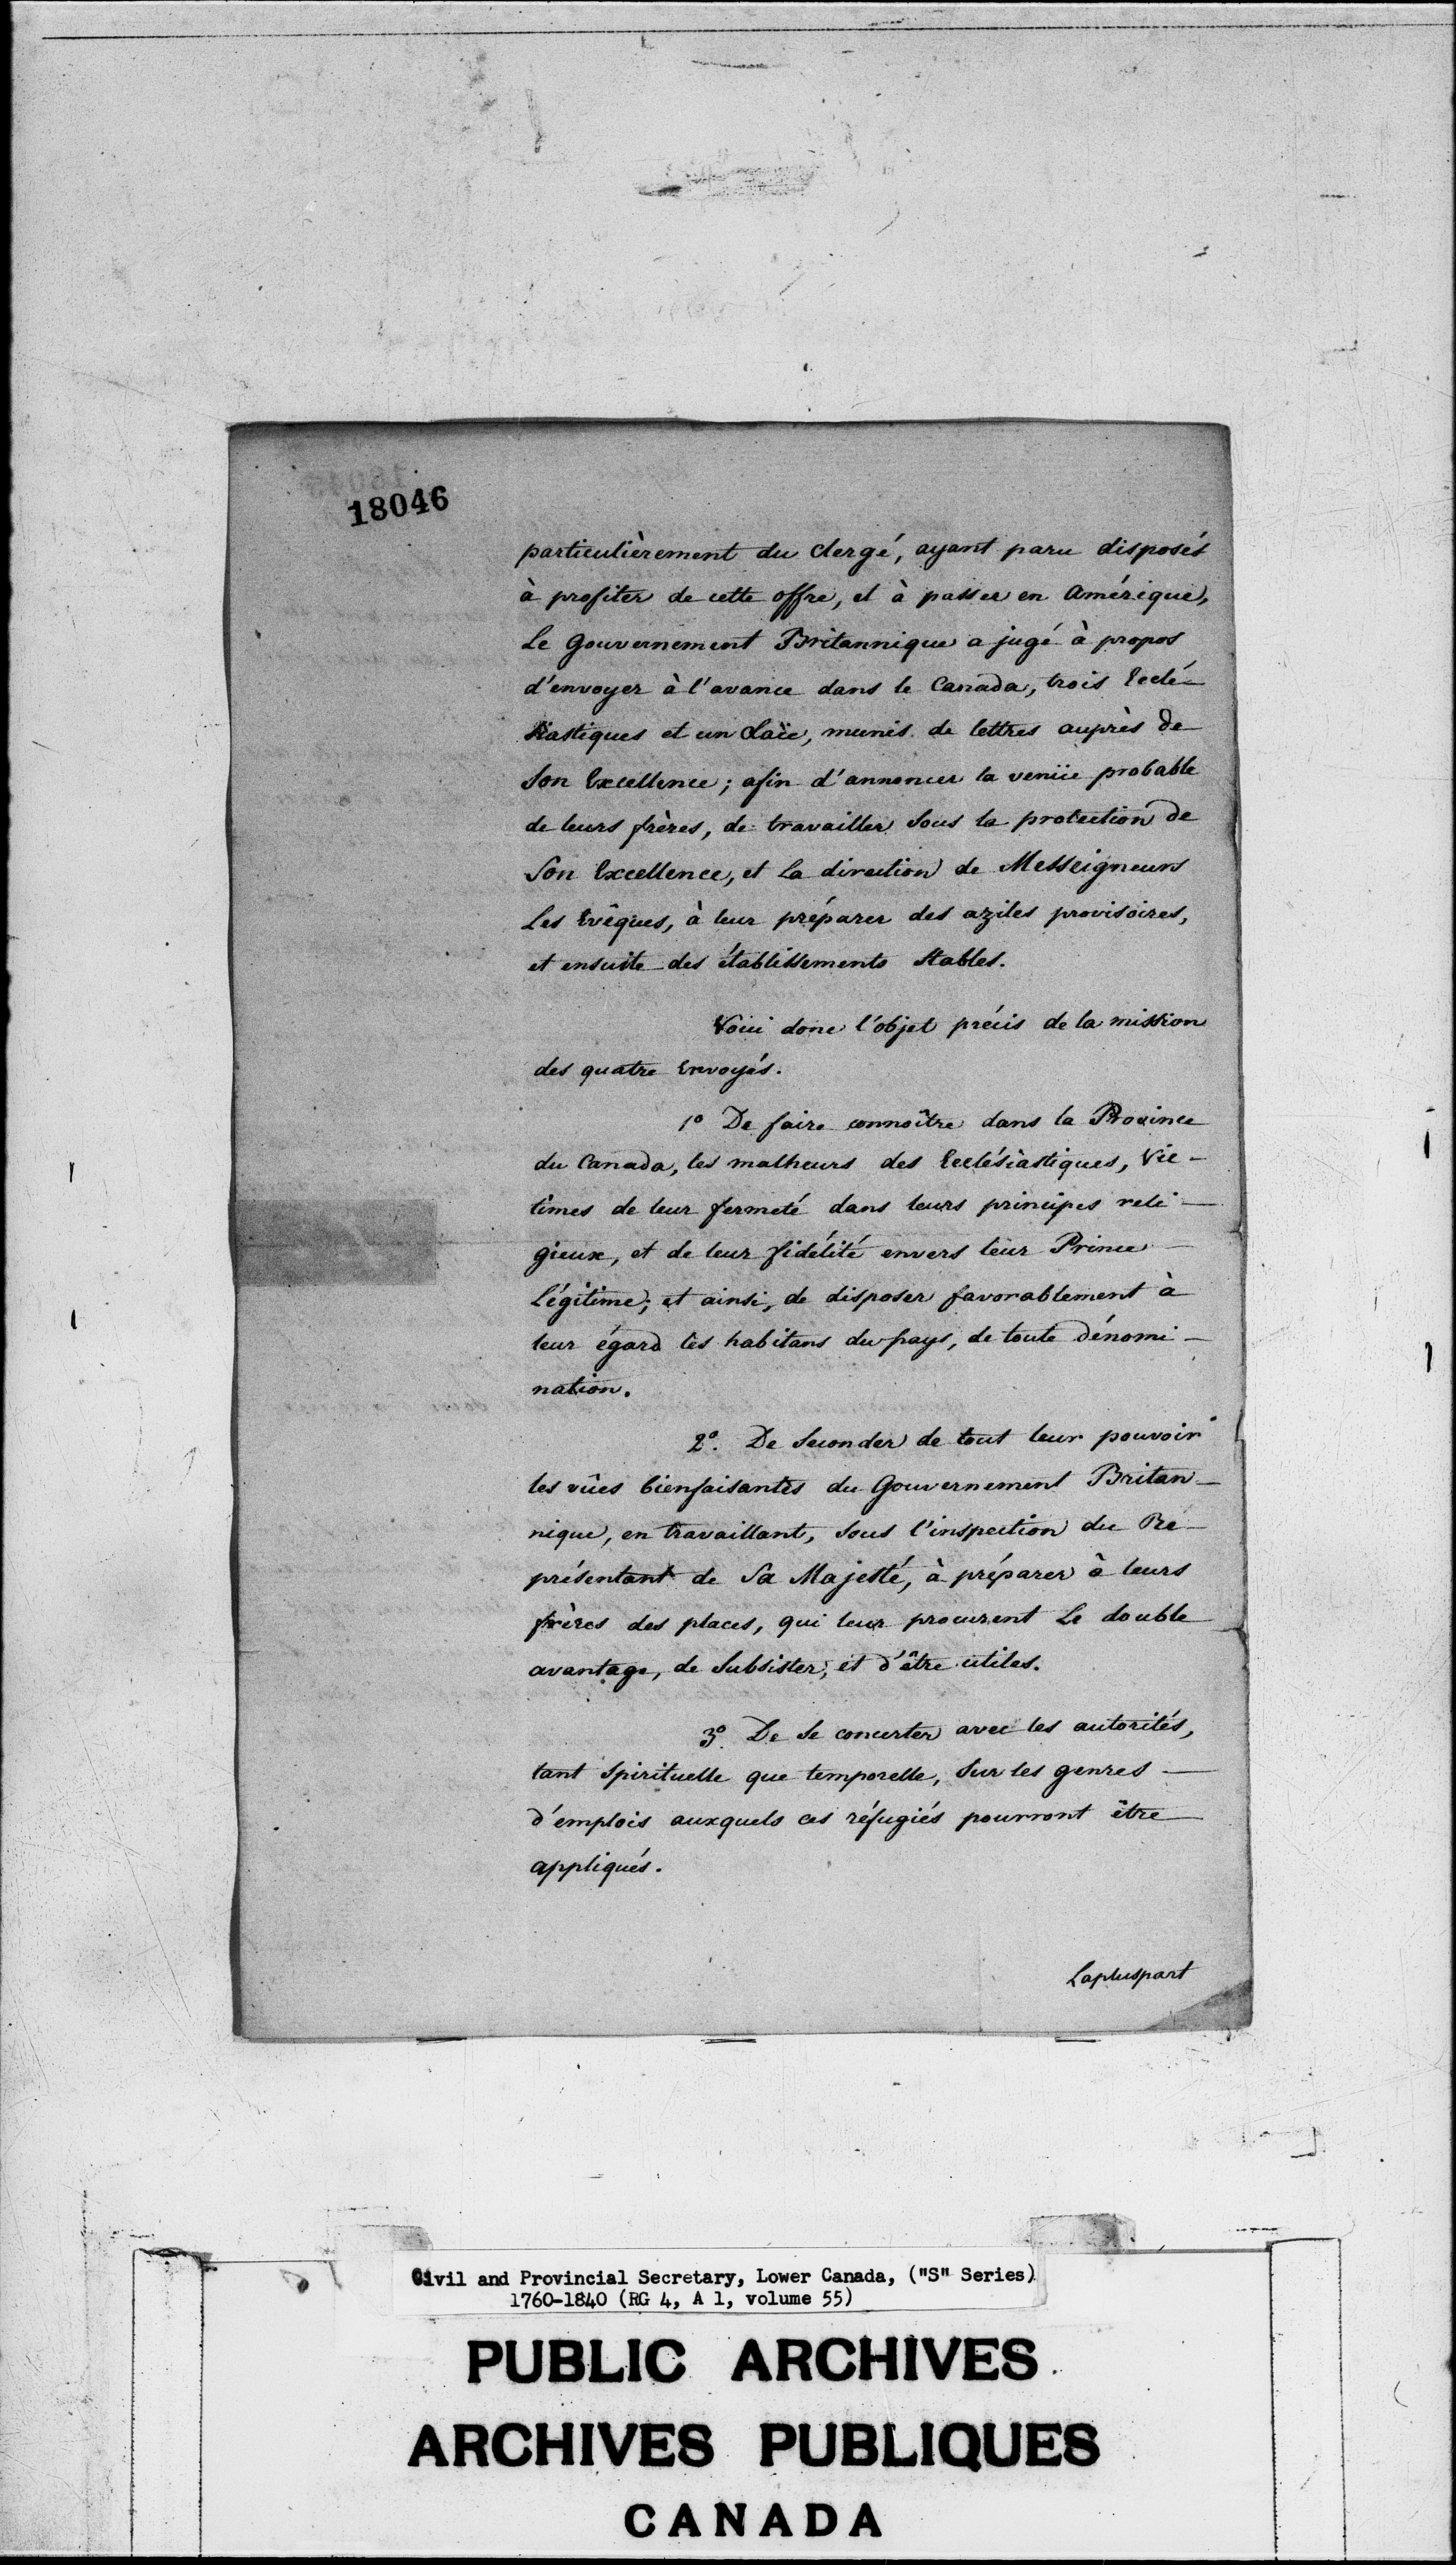 18046
particulièrement du clergé, ayant paru disposés
à profiter de cette offre, et à passer en Amérique,
Le Gouvernement Britannique a jugé à propos
d'envoyer à l'avance dans le Canada, trois Ecclé-
siastiques et un Laïc, munis de lettres auprès de
Son Excellence; afin d'annoncer la venüe probable
de leurs frères, de travailler sous la protection de
Son Excellence, et La direction de Messeigneurs
Les Evêques, à leur préparer des aziles provisoires,
et ensuite des établissements stables.
Voici donc l'objet précis de la mission
des quatre Envoyés.
1º De faire connoître dans la Province
du Canada, les malheurs des Ecclésiastiques, Vic-
times de leur fermeté dans leurs principes reli-
gieux, et de leur fidélité envers leur Prince
Légitime; et ainsi, de disposer favorablement à
leur égard les habitans du pays, de toute dénomi-
nation.
2º. De seconder de tout leur pouvoir
les vûes bienfaisantes du Gouvernement Britan-
nique, en travaillant, sous l'inspection du Re-
présentant de Sa Majesté, à préparer à leurs
frères des places, qui leur procurent Le double
avantage, de subsister, et d'être utiles.
3º. De se concerter avec les autorités,
tant spirituelle que temporelle, sur les genres
d'emplois auxquels ces réfugiés pourront être
appliqués.
Lapluspart
Civil and Provincial Secretary, Lower Canada, ("S" Series)
1760-1840 (RG 4, A 1, volume 55)
PUBLIC ARCHIVES
ARCHIVES PUBLIQUES
CANADA